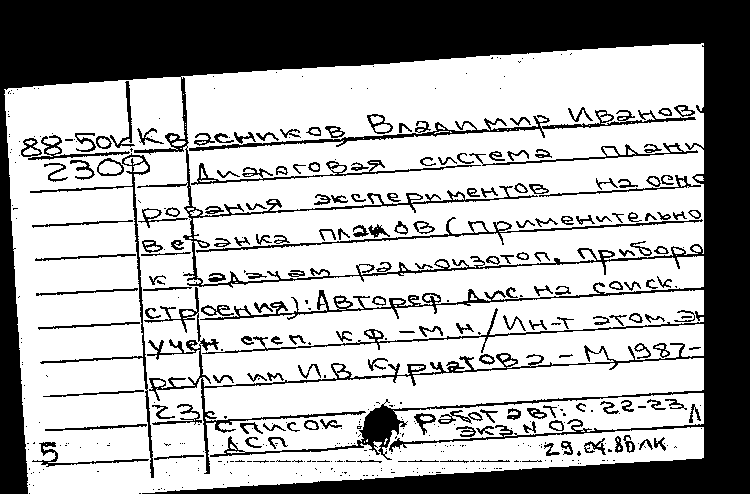 88-50к Квасников, Владимир Иванови
2309 Диалоговая система плани
рования экспериментов на осно
ве банка планов (применительно
к задачам радиоизотоп. приборо
строения): Автореф. дис. на соиск.
учен. степ. к.ф.-м.н. / Ин-т атом. эн
ергии им И.В. Курчатова. - М, 1987-
23с.
Список работ авт: с. 22-23
ДСП экз. N 02. Л
5 29.04.88 лк